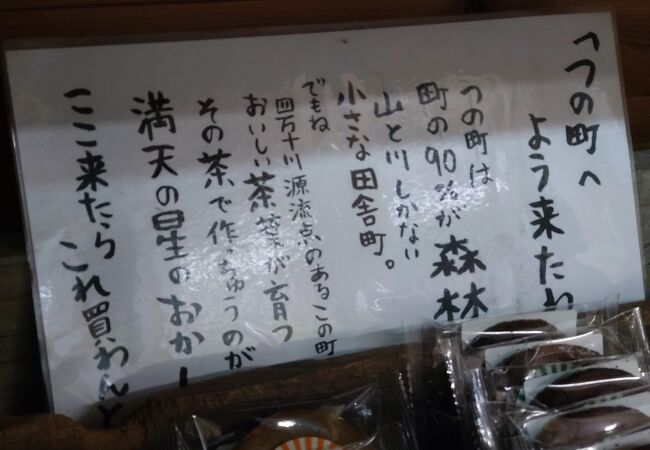 「つの町へ
よう来たわ
つの町は
町の90%が森林
山と川しかない
小さな田舎町。
でもね
四万十川源流点のあるこの町
おいしい茶葉が育つ
その茶で作っちゅうのが
満天の星のおかし
ここ来たら これ買わんと